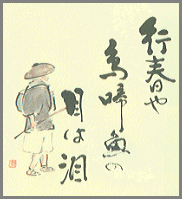 行春や
鳥啼魚の
目は泪